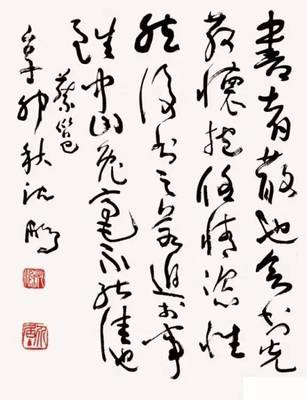 書者散也欲書先
散懷抱任情恣性
然後書之若迫於事
雖中山兔毫不能佳也
蔡邕
辛卯秋沈鵬